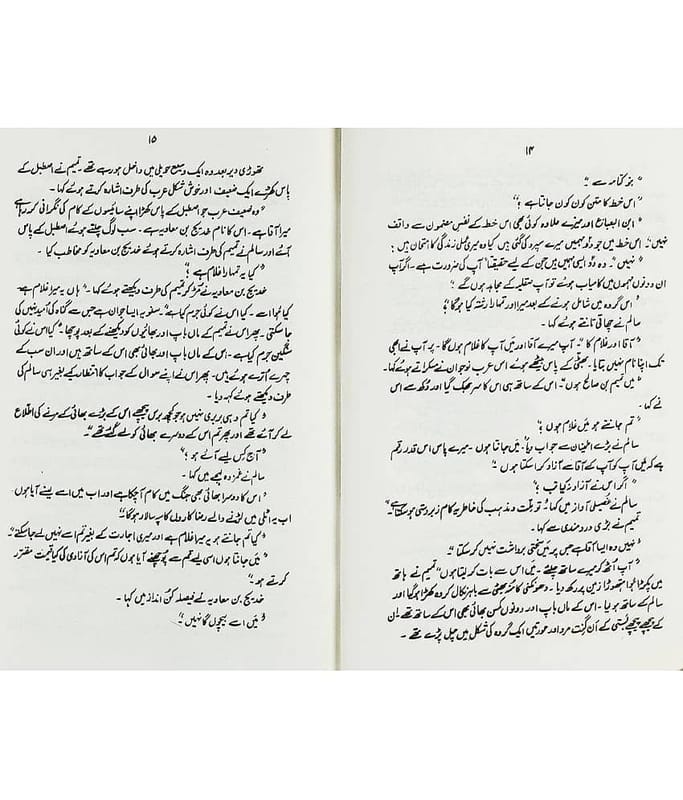 ۱۴
"بنو کتامہ سے"۔
"اس خط کا متن کون کون جانتا ہے؟"
"ابن البعباع اور میرے علاوہ کوئی بھی اس خط کے نفسِ مضمون سے واقف
نہیں"۔ اس خط میں جو دو مہمیں میرے سپرد کی گئی ہیں کیا وہ میری عملی زندگی کا امتحان ہیں؟
"نہیں"۔ وہ دو ایسی مہمیں ہیں جن کے لیے حقیقتاً آپ کی ضرورت ہے۔ اگر آپ
ان دونوں مہموں میں کامیاب ہوئے تو آپ متقلیہ کے مجاہد ہوں گے"؛
"اس گروہ میں شامل ہونے کے بعد میرا اور تمہارا رشتہ کیا ہو گا؟"
سالم نے چھاتی تانتے ہوئے کہا۔
"آقا اور غلام کا"۔ آپ میرے آقا اور میں آپ کا غلام ہوں گا۔ پر آپ نے ابھی
تک اپنا نام نہیں بتایا۔ بھٹی کے پاس بیٹھے ہوئے اس عرب نوجوان نے مسکراتے ہوئے کہا۔
"میں تمیم بن صالح ہوں"۔ اس کے ساتھ ہی اس کا سر جھک گیا اور دکھ سے اس
نے کہا۔
"تم جانتے ہو میں غلام ہوں؟"
سالم نے بڑے اطمینان سے جواب دیا: میں جانتا ہوں۔ میرے پاس اس قدر رقم
ہے کہ میں آپ کو آپ کے آقا سے آزاد کرا سکتا ہوں"۔
"اگر اس نے آزاد نہ کیا تب؟"
سالم نے فیصل آواز میں کہا: تو ملت و مذہب کی خاطر یہ کام زبردستی ہو سکتا ہے"۔
تمیم نے بڑی دردمندی سے کہا۔
"نہیں وہ ایسا آقا ہے جس پر میں سختی برداشت نہیں کر سکتا"۔
"آپ اُٹھ کر میرے ساتھ چلئے۔ میں اس سے بات کر لیتا ہوں" تمیم نے ہاتھ
میں پکڑا ہوا ہتھوڑا زمین پر رکھ دیا۔ دھونکنی کا منہ بھٹی سے باہر نکال کر وہ کھڑا ہو گیا اور
سالم کے ساتھ ہو لیا۔ اس کے ماں باپ اور دونوں کمسن بھائی بھی اس کے ساتھ تھے۔ ان
کے پیچھے پیچھے بستی کے اَن گنت مرد اور عورتیں ایک گروہ کی شکل میں چل پڑے تھے۔
۱۵
تھوڑی دیر بعد وہ ایک وسیع حویلی میں داخل ہو رہے تھے۔ تمیم نے اصطبل کے
پاس کھڑے ایک ضعیف اور خوش شکل عرب کی طرف اشارہ کرتے ہوئے کہا۔
"وہ ضعیف عرب جو اصطبل کے پاس کھڑا اپنے سائیسوں کے کام کی نگرانی کر رہا ہے
میرا آقا ہے۔ اس کا نام خدیج بن معاویہ ہے۔ سب لوگ چلتے ہوئے اس کے پاس
آئے اور سالم نے تمیم کی طرف اشارہ کرتے ہوئے خدیج بن معاویہ کو مخاطب کیا۔
"کیا یہ تمہارا غلام ہے؟"
خدیج بن معاویہ نے مڑ کر تمیم کی طرف دیکھتے ہوئے کہا۔ "ہاں یہ میرا غلام ہے۔
کیا ہوا اسے۔ کیا اس نے کوئی جرم کیا ہے" سنو یہ ایسا جوان ہے جس سے گناہ کی اُمید نہیں کی
جا سکتی۔ پھر اس نے تمیم کے ماں باپ اور بھائیوں کو دیکھنے کے بعد پوچھا: کیا اس نے کوئی
سنگین جرم کیا ہے۔ اس کے ماں باپ اور بھائی بھی اس کے ساتھ ہیں اور ان سب کے
چہرے اُترے ہوئے ہیں۔ پھر اس نے اپنے سوال کے جواب کا انتظار کیے بغیر ہی سالم کی
طرف دیکھتے ہوئے کہہ دیا۔
"کیا تم وہی بربری نہیں ہو جو کچھ برس پیچھے اس کے بڑے بھائی کے مرنے کی اطلاع
لے کر آئے تھے اور پھر تم اس کے دوسرے بھائی کو لے گئے تھے"۔
"آج کس لیے آئے ہو؟"
سالم نے غمزدہ لہجے میں کہا۔
"اس کا دوسرا بھائی بھی جنگ میں کام آ چکا ہے اور اب میں اسے لینے آیا ہوں
اب یہ اٹلی میں لڑنے والے رضا کاروں کا سپہ سالار ہو گا"۔
"کیا تم جانتے ہو یہ میرا غلام ہے اور میری اجازت کے بغیر تم اسے نہیں لے جا سکتے"۔
"میں جانتا ہوں اسی لیے تم سے پوچھنے آیا ہوں کہ تم اس کی آزادی کی کیا قیمت مقرر
کرتے ہو"۔
خدیج بن معاویہ نے فیصلہ کن انداز میں کہا۔
"میں اسے بیچوں گا نہیں"۔